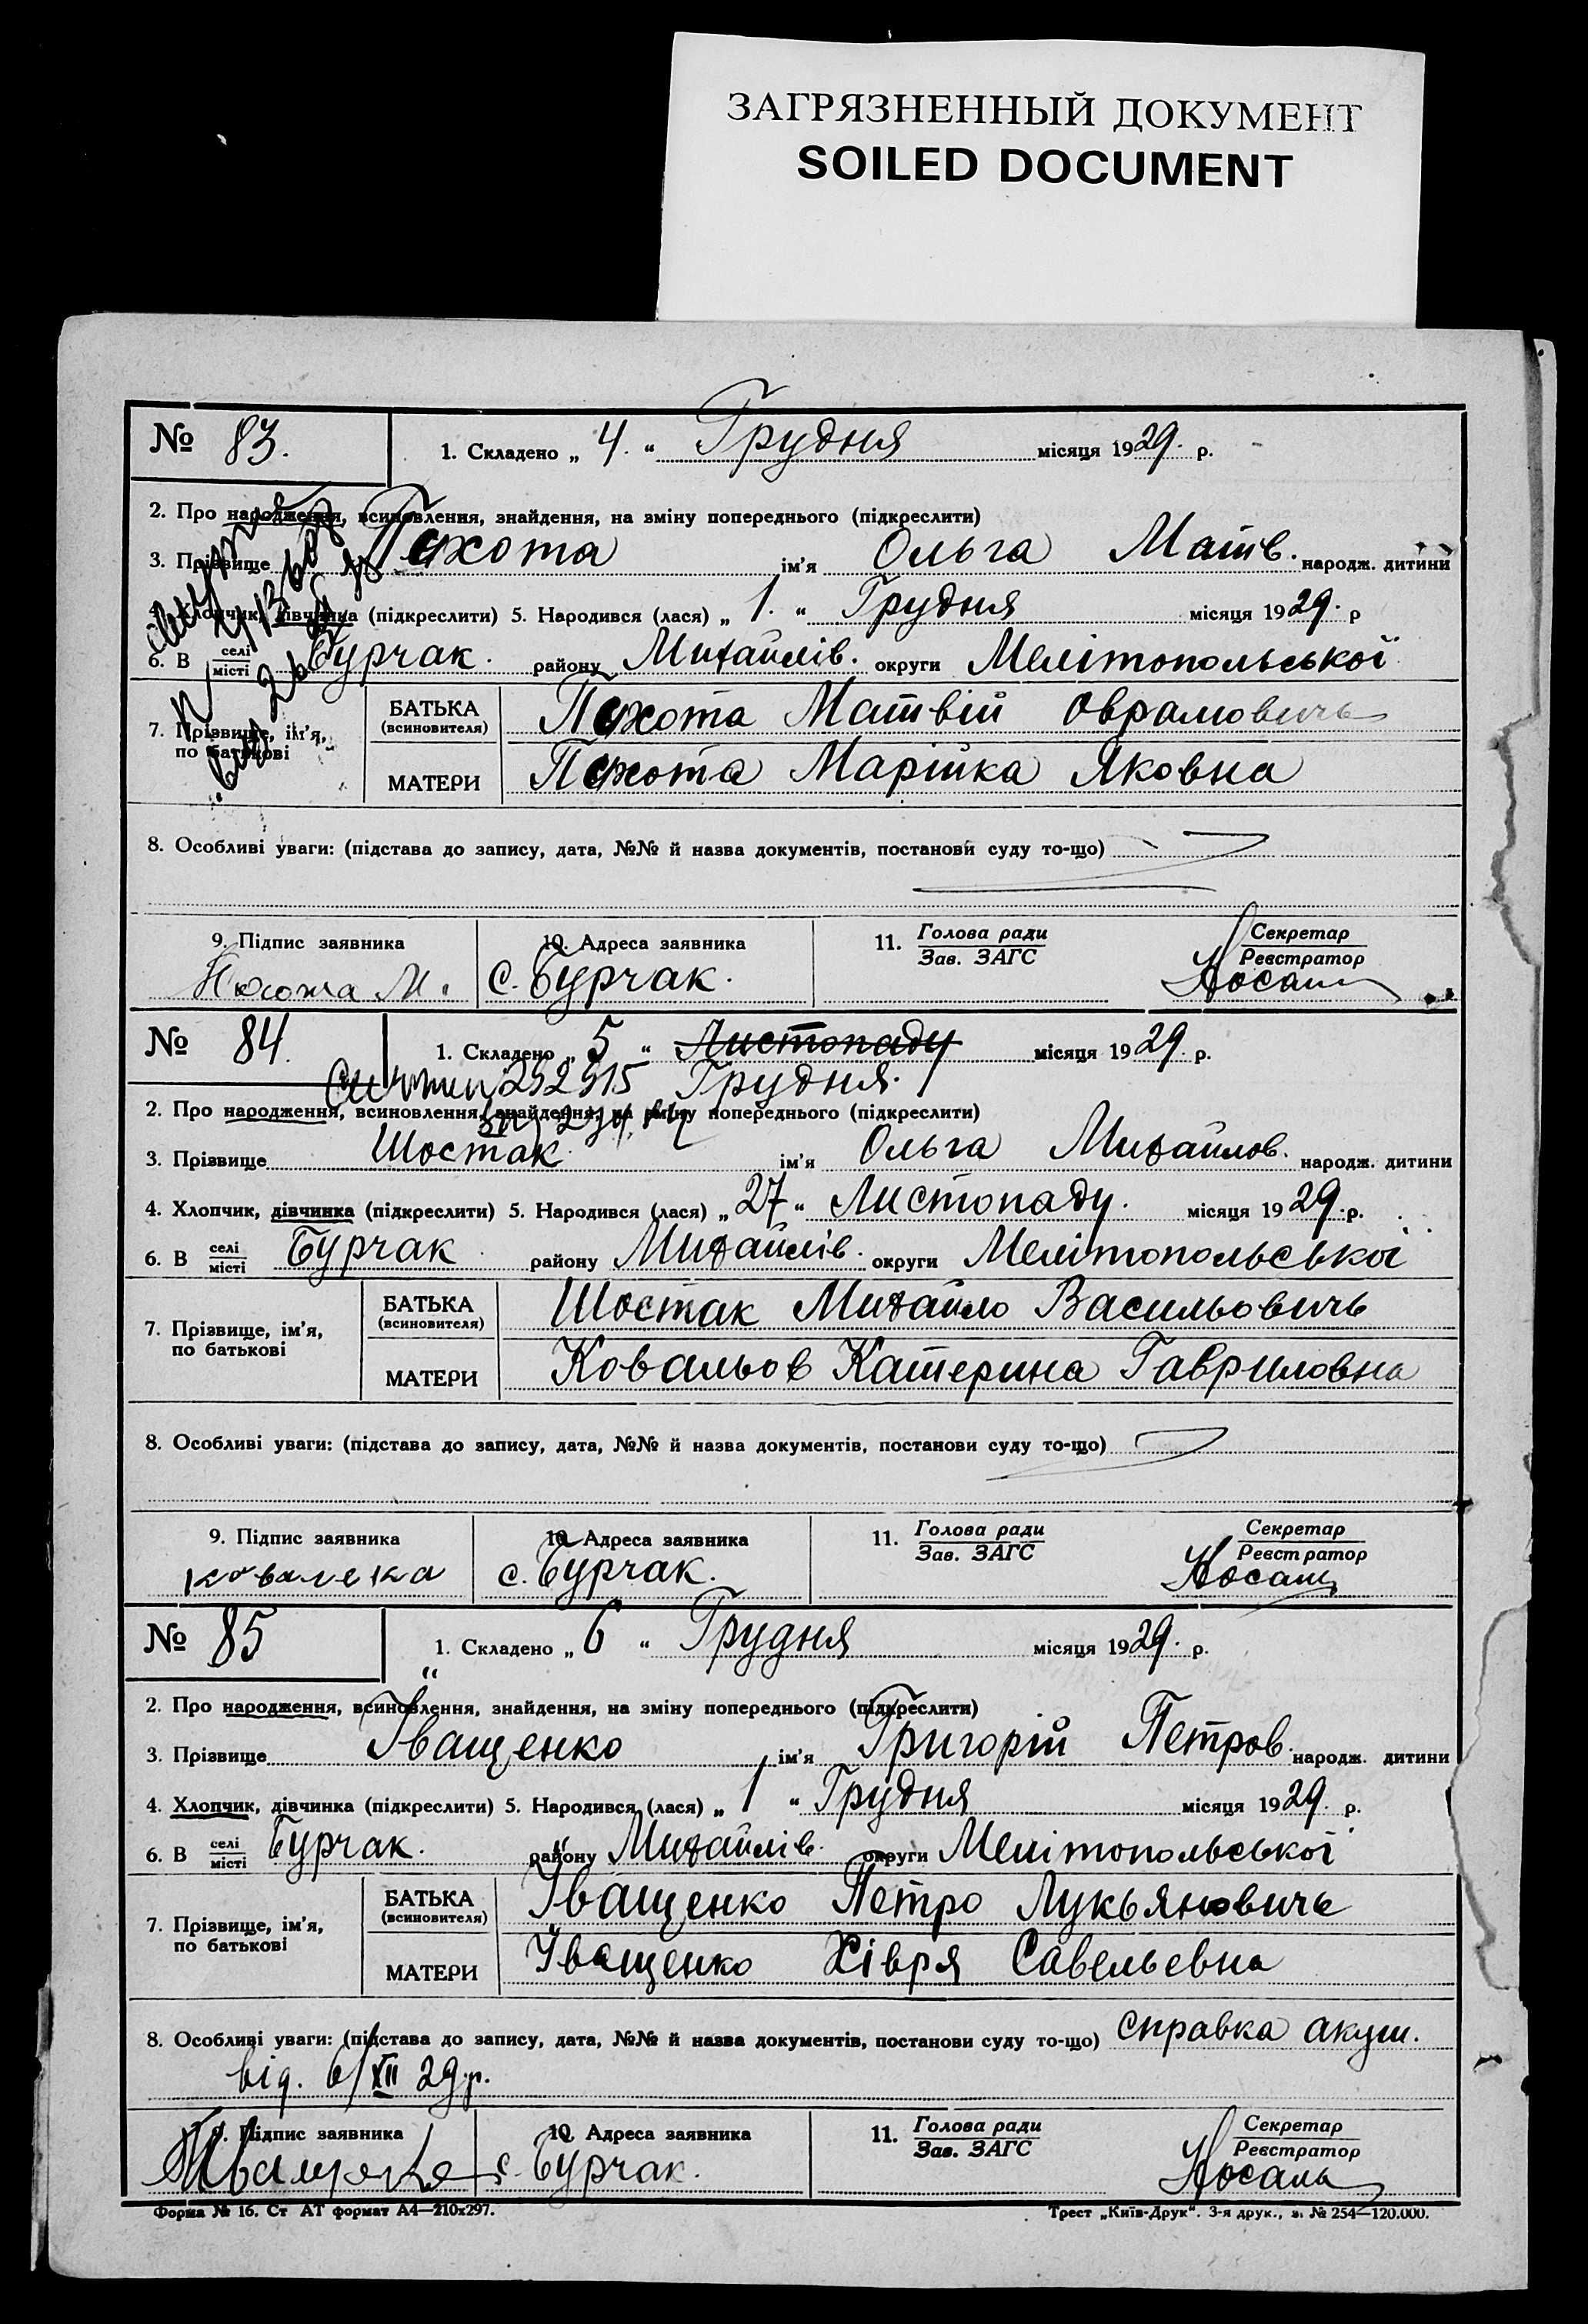 ЗАГРЯЗНЕННЫЙ ДОКУМЕНТ
SOILED DOCUMENT
№ 83. 1. Складено „ 4. “ Грудня місяця 1929. р.
2. Про народження, всиновлення, знайдення, на зміну попереднього (підкреслити)
3. Прізвище Пехота ім'я Ольга Матв. народж. дитини
4. Хлопчик, дівчинка (підкреслити) 5. Народився (лася) „ 1. “ Грудня місяця 1929. р
6. В селі/місті Бурчак. району Михайлів. округи Мелітопольської
7. Прізвище, ім'я, по батькові
БАТЬКА (всиновителя) Матвій Оврамовичь
МАТЕРИ Марійка Яковна
8. Особливі уваги: (підстава до запису, дата, №№ й назва документів, постанови суду то-що)
9. Підпис заявника 10. Адреса заявника 11. Голова ради Секретар
Зав. ЗАГС Реєстратор
М. с. Бурчак. Носаль
№ 84. 1. Складено „ 5 “ Листопаду місяця 1929. р.
Грудня.
2. Про народження, всиновлення, знайдення, на зміну попереднього (підкреслити)
3. Прізвище Шостак ім'я Ольга Михайлов. народж. дитини
4. Хлопчик, дівчинка (підкреслити) 5. Народився (лася) „ 27 “ Листопаду. місяця 1929. р.
6. В селі/місті Бурчак району Михайлів. округи Мелітопольської
7. Прізвище, ім'я, по батькові
БАТЬКА (всиновителя) Шостак Михайло Васильовичь
МАТЕРИ Ковальов Катерина Гавриловна
8. Особливі уваги: (підстава до запису, дата, №№ й назва документів, постанови суду то-що)
9. Підпис заявника 10. Адреса заявника 11. Голова ради Секретар
Зав. ЗАГС Реєстратор
с. Бурчак. Носаль
№ 85 1. Складено „ 6 “ Грудня місяця 1929. р.
2. Про народження, всиновлення, знайдення, на зміну попереднього (підкреслити)
3. Прізвище Іващенко ім'я Григорій Петров. народж. дитини
4. Хлопчик, дівчинка (підкреслити) 5. Народився (лася) „ 1 “ Грудня місяця 1929. р.
6. В селі/місті Бурчак. району Михайлів. округи Мелітопольської
7. Прізвище, ім'я, по батькові
БАТЬКА (всиновителя) Іващенко Петро Лукьяновичь
МАТЕРИ Іващенко Хівря Савельевна
8. Особливі уваги: (підстава до запису, дата, №№ й назва документів, постанови суду то-що) справка акуш.
від. 6/XII 29 р.
9. Підпис заявника 10. Адреса заявника 11. Голова ради Секретар
Зав. ЗАГС Реєстратор
с. Бурчак. Носаль
Форма № 16. Ст АТ формат А4—210х297. Трест „Київ-Друк“. 3-я друк., з. № 254—120.000.